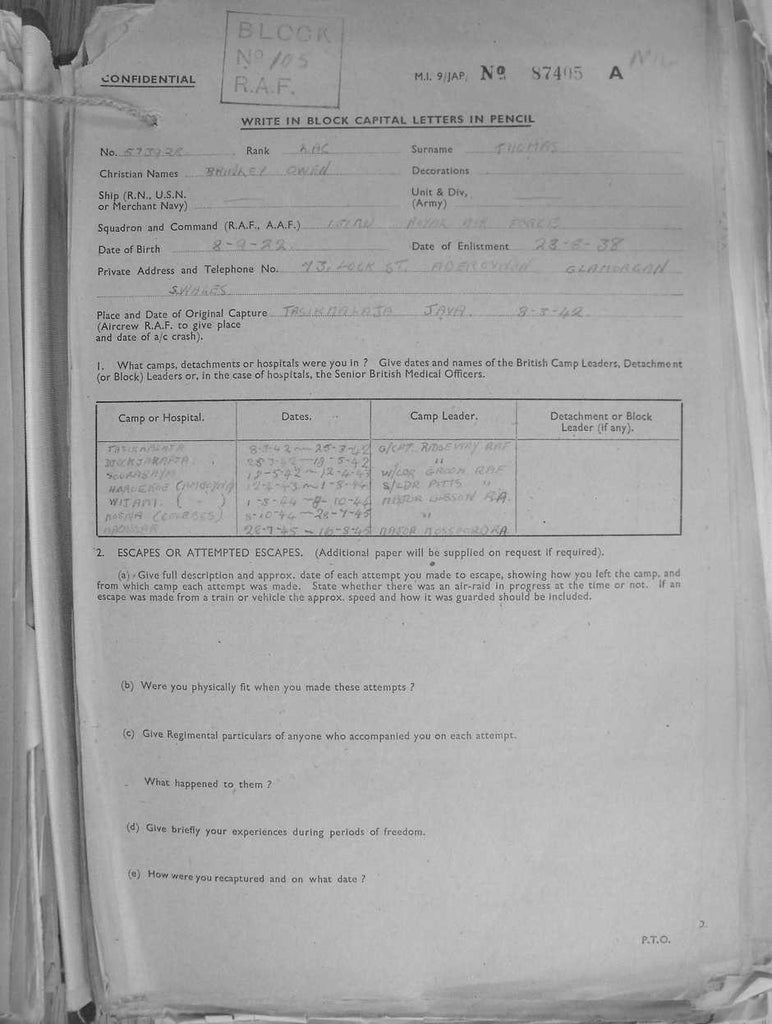 BLOCK
No 105
R.A.F.
CONFIDENTIAL
M.I. 9/JAP/ No. 87405 A
WRITE IN BLOCK CAPITAL LETTERS IN PENCIL
No. Rank LAC Surname THOMAS
Christian Names OWEN Decorations
Ship (R.N., U.S.N.
or Merchant Navy)
Unit & Div.
(Army)
Squadron and Command (R.A.F., A.A.F.) ROYAL AIR FORCE
Date of Birth 8-9-22 Date of Enlistment 23-8-38
Private Address and Telephone No. 73, LOCK ST. ABERCYNON GLAMORGAN
S. WALES
Place and Date of Original Capture TASIKMALAJA JAVA. 8-3-42
(Aircrew R.A.F. to give place
and date of a/c crash).
1. What camps, detachments or hospitals were you in ? Give dates and names of the British Camp Leaders, Detachment
(or Block) Leaders or, in the case of hospitals, the Senior British Medical Officers.
Camp or Hospital. Dates. Camp Leader. Detachment or Block
Leader (if any).
TASIKMALAJA 8-3-42 — 25-3-42 G/CPT. RIDGEWAY RAF
DJOKJAKARTA "
SOURABAYA W/CDR GROOM RAF
S/LDR PITTS "
1-8-44 — 8-10-44 MAJOR GIBSON RA.
(CELEBES) 8-10-44 — 28-7-45 "
28-7-45 — MAJOR
2. ESCAPES OR ATTEMPTED ESCAPES. (Additional paper will be supplied on request if required).
(a) Give full description and approx. date of each attempt you made to escape, showing how you left the camp, and
from which camp each attempt was made. State whether there was an air-raid in progress at the time or not. If an
escape was made from a train or vehicle the approx. speed and how it was guarded should be included.
(b) Were you physically fit when you made these attempts ?
(c) Give Regimental particulars of anyone who accompanied you on each attempt.
What happened to them ?
(d) Give briefly your experiences during periods of freedom.
(e) How were you recaptured and on what date ?
P.T.O.